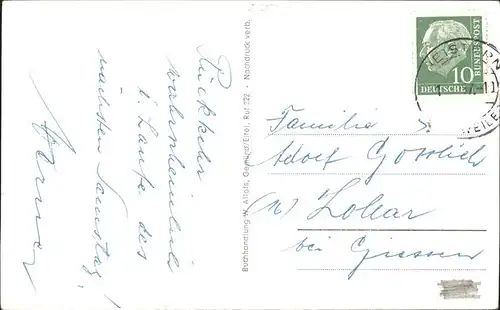 Rückkehr
wahrscheinlich
i. Laufe des
nächsten Samstag!
Werner
Buchhandlung W. Altols, Gemünd/Eifel, Ruf 322 - Nachdruck verb.
10
DEUTSCHE
BUNDESPOST
Familie
Adolf Gorrlich
Lollar
bei Giessen